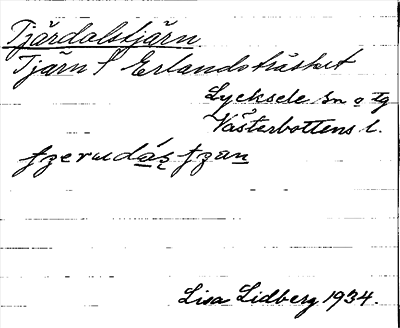 Tjärdalstjärn
Tjärn S Erlandsträsket
Lycksele sn o tg
Västerbottens l.
Lisa Lidberg 1934.